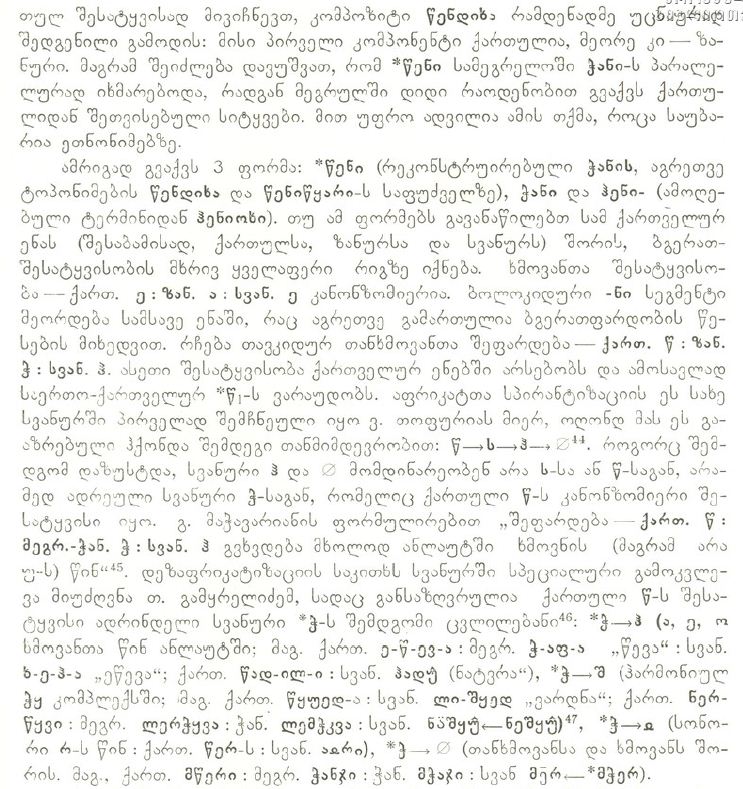 თულ შესატყვისად მივიჩნევთ, კომპოზიტი წენდიხა რამდენადმე უცნაურად
შედგენილი გამოდის: მისი პირველი კომპონენტი ქართულია, მეორე კი — ზა-
ნური. მაგრამ შეიძლება დავუშვათ, რომ *წენი სამეგრელოში ჭანი-ს პარალე-
ლურად იხმარებოდა, რადგან მეგრულში დიდი რაოდენობით გვაქვს ქართუ-
ლიდან შეთვისებული სიტყვები. მით უფრო ადვილია ამის თქმა, როცა საუბა-
რია ეთნონიმებზე.
ამრიგად გვაქვს 3 ფორმა: *წენი (რეკონსტრუირებული ჭანის, აგრეთვე
ტოპონიმების წენდიხა და წენიწყარი-ს საფუძველზე), ჭანი და ჰენი- (ამოღე-
ბული ტერმინიდან ჰენიოხი). თუ ამ ფორმებს გავანაწილებთ სამ ქართველურ
ენას (შესაბამისად, ქართულსა, ზანურსა და სვანურს) შორის, ბგერათ-
შესატყვისობის მხრივ ყველაფერი რიგზე იქნება. ხმოვანთა შესატყვისო-
ბა — ქართ. ე : ზან. ა : სვან. ე კანონზომიერია. ბოლოკიდური -ნი სეგმენტი
მეორდება სამსავე ენაში, რაც აგრეთვე გამართულია ბგერათფარდობის წე-
სების მიხედვით. რჩება თავკიდურ თანხმოვანთა შეფარდება — ქართ. წ : ზან.
ჭ : სვან. ჰ. ასეთი შესატყვისობა ქართველურ ენებში არსებობს და ამოსავლად
საერთო-ქართველურ *წ₁-ს ვარაუდობს. აფრიკატთა სპირანტიზაციის ეს სახე
სვანურში პირველად შემჩნეული იყო ვ. თოფურიას მიერ, ოღონდ მას ეს გა-
აზრებული ჰქონდა შემდეგი თანმიმდევრობით: წ→ს→ჰ→∅⁴⁴. როგორც შემ-
დგომ დაზუსტდა, სვანური ჰ და ∅ მომდინარეობენ არა ს-სა ან წ-საგან, არა-
მედ ადრეული სვანური ჭ-საგან, რომელიც ქართული წ-ს კანონზომიერი შე-
სატყვისი იყო. გ. მაჭავარიანის ფორმულირებით „შეფარდება — ქართ. წ :
მეგრ.-ჭან. ჭ : სვან. ჰ გვხვდება მხოლოდ ანლაუტში ხმოვნის (მაგრამ არა
უ-ს) წინ“⁴⁵. დეზაფრიკატიზაციის საკითხს სვანურში სპეციალური გამოკვლე-
ვა მიუძღვნა თ. გამყრელიძემ, სადაც განსაზღვრულია ქართული წ-ს შესა-
ტყვისი ადრინდელი სვანური *ჭ-ს შემდგომი ცვლილებანი⁴⁶: *ჭ→ჰ (ა, ე, ო
ხმოვანთა წინ ანლაუტში; მაგ. ქართ. ე-წ-ევ-ა : მეგრ. ჭ-აფ-ა „წევა“ : სვან.
ხ-ე-ჰ-ა „ეწევა“; ქართ. წად-ილ-ი : სვან. ჰადჳ (ნატვრა“), *ჭ→შ (ჰარმონიულ
ჭყ კომპლექსში; მაგ. ქართ. წყუედ-ა : სვან. ლი-შყედ „ვარდნა“; ქართ. ნერ-
წყვი : მეგრ. ლერჭყვა : ჭან. ლემჭკვა : სვან. ნა̈შყჳ←ნეშყჳ)⁴⁷, *ჭ→ჲ (სონო-
რი რ-ს წინ : ქართ. წერ-ს : სვან. აჲრი), *ჭ→ ∅ (თანხმოვანსა და ხმოვანს შო-
რის. მაგ., ქართ. მწერი : მეგრ. ჭანჯი : ჭან. მჭაჯი : სვან მერ←*მჭერ).